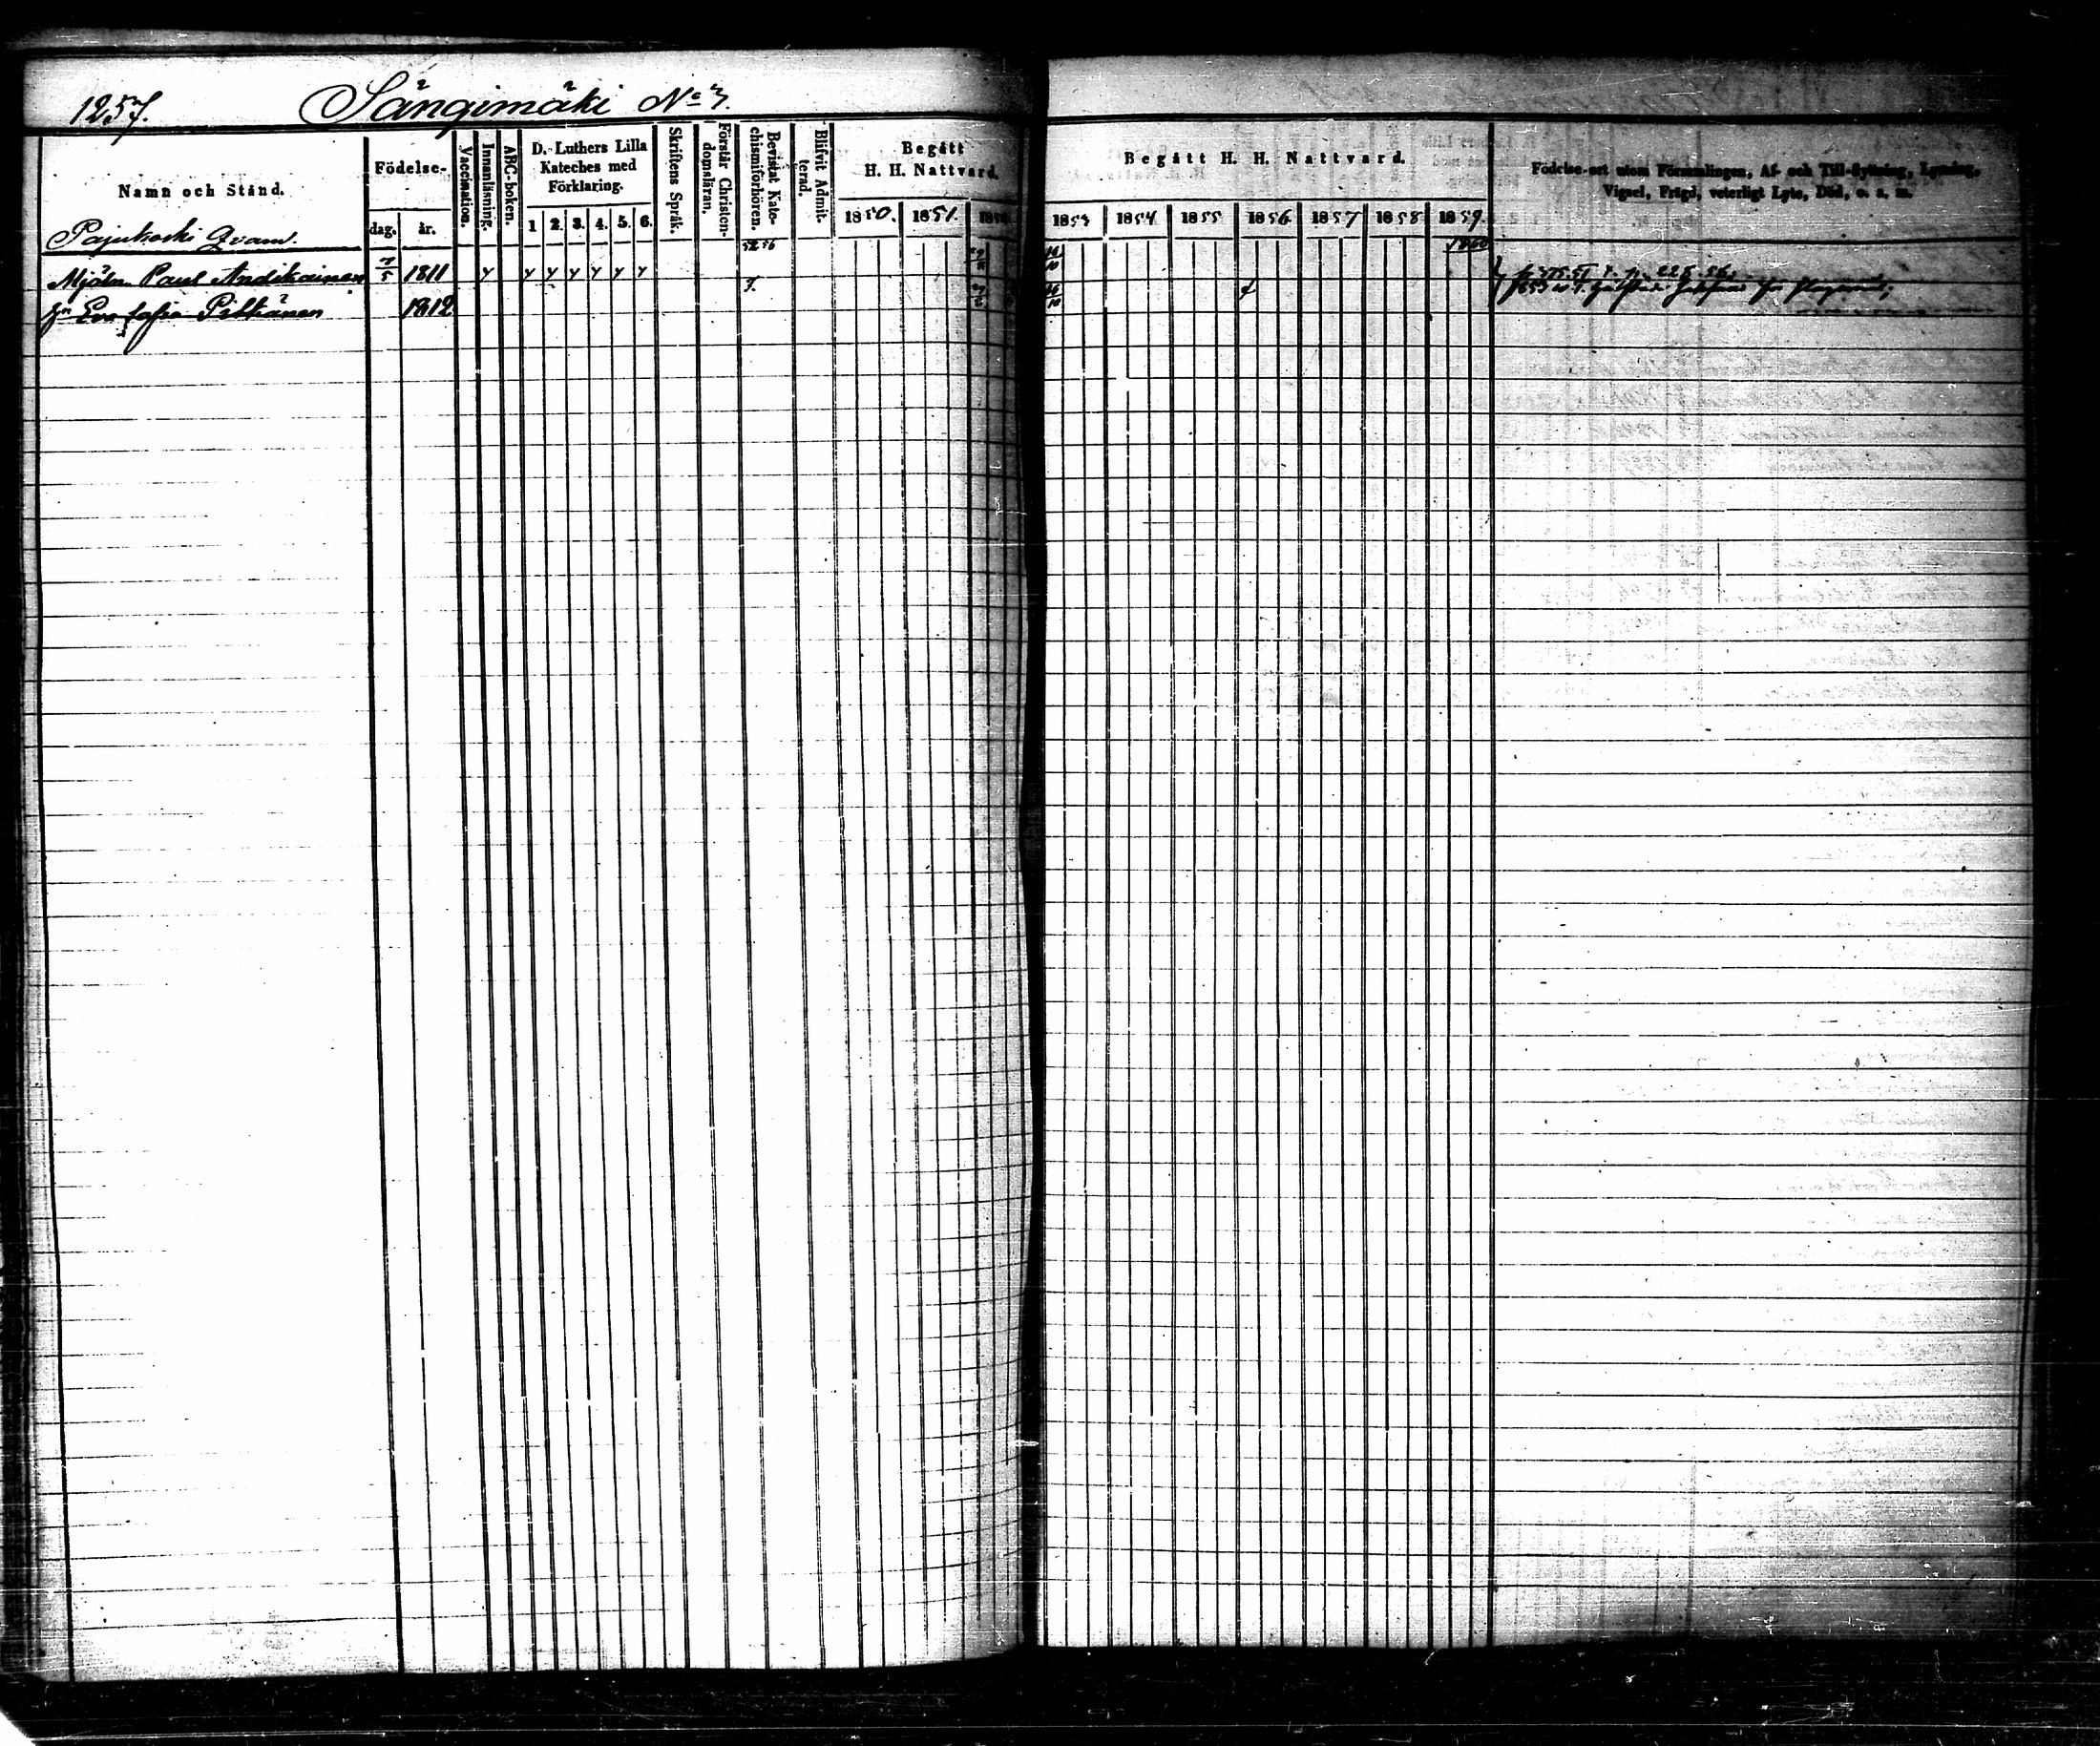 1257. Sångimäki No 3.
Namn och Stånd.
Födelse-
dag. år.
Vaccination.
Innanläsning.
ABC-boken.
D. Luthers Lilla
Kateches med
Förklaring.
1 2. 3. 4. 5. 6.
Skriftens Språk.
Förstår Christen-
domsläran.
Bevistat Kate-
chismiförhören.
Blifvit Admit-
terad.
Begått
H. H. Nattvard.
1850. 1851.
Begått H. H. Nattvard.
1853 1854 1855 1856 1857 1858 1859
1860
Födelse-ort utom Församlingen, Af- och Till-flyttning, Lysning,
Vigsel, Frägd, veterligt Lyte, Död, o. s. m.
Pajukoski Qvarn.
Mjöln. Paul Andikainen 5 1811
Hu Eva Sofia Pitkänen 1812